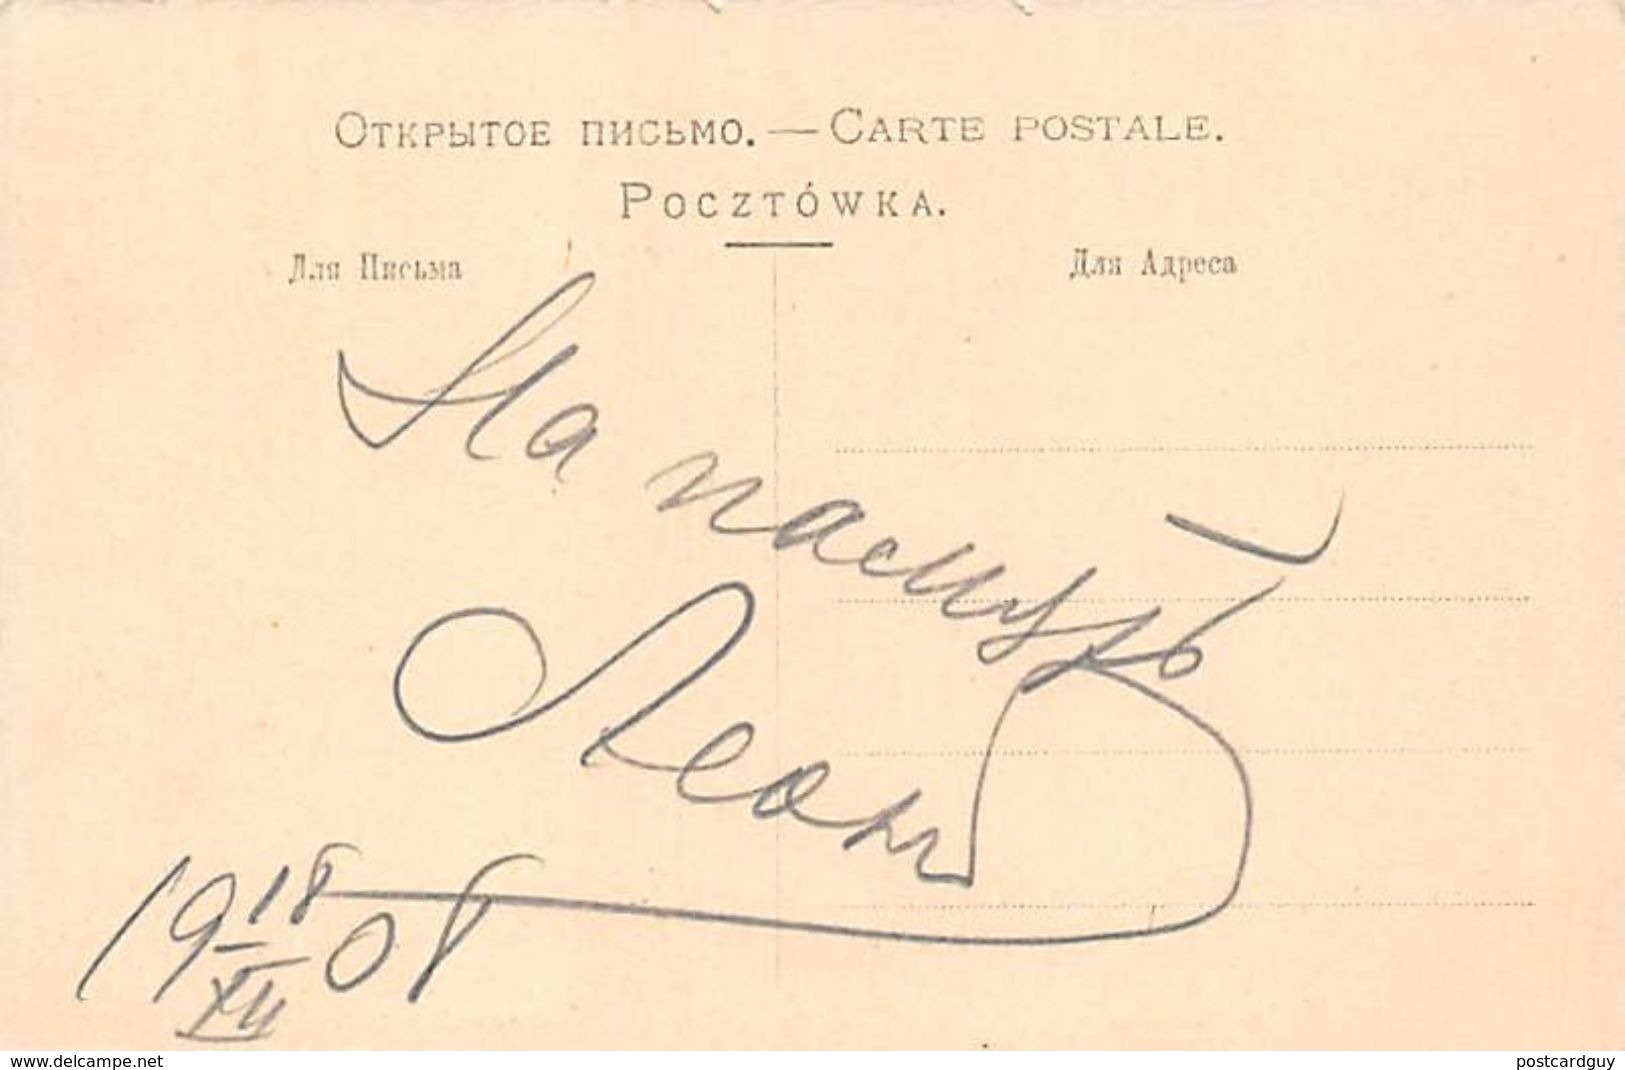 Открытое письмо. — Carte postale.
Pocztówka.
Для Письма
Для Адреса
На
Леон
19 18/XII 08
www.delcampe.net
postcardguy